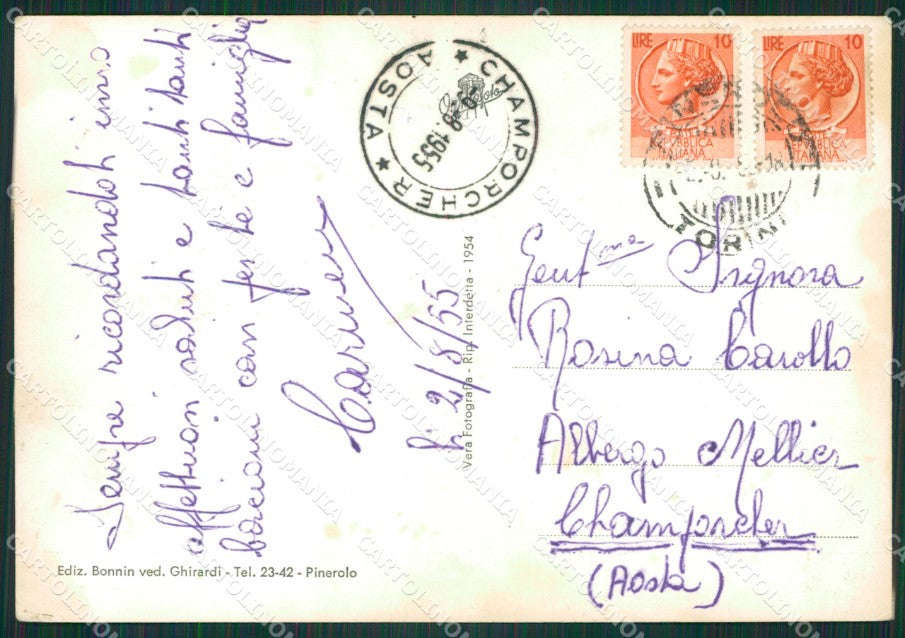 Sempre ricordandoti invio
affettuosi saluti e tanti tanti
bacioni con feste e famiglia
Carmen
lì 2/8/55
CHAMPORCHER ★ AOSTA ★
-8 1955
LIRE 10
REPUBBLICA
ITALIANA
LIRE 10
REPUBBLICA
ITALIANA
Gent.ma Signora
Rosina Carollo
Albergo Mellier
Champorcher
(Aosta)
Vera Fotografia - Rip. Interdetta - 1954
Ediz. Bonnin ved. Ghirardi - Tel. 23-42 - Pinerolo
CARTOLINOMANIA